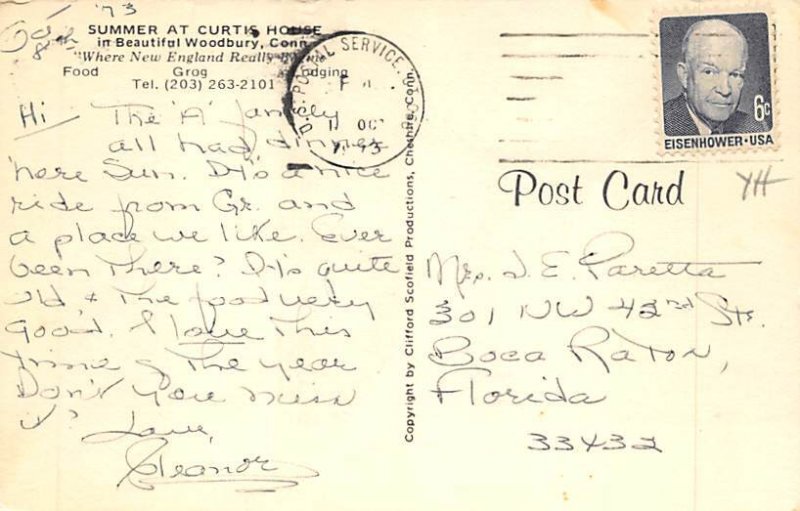 '73
Oct 8th
SUMMER AT CURTIS HOUSE
in Beautiful Woodbury, Conn.
"Where New England Really
Food Grog Lodging
Tel. (203) 263-2101
Hi - The 'A' family
all had dinner
here Sun. It's a nice
ride from Gr. and
a place we like. Ever
been there? It's quite
old, & the food very
good. I love this
time of the year
Don't you miss
it? Love,
Eleanor
Copyright by Clifford Scofield Productions, Cheshire, Conn.
U.S. POSTAL SERVICE,
OC
6c
EISENHOWER·USA
Post Card
YH
Mrs. J. E. Paretta
301 NW 42rd Str.
Boca Raton,
Florida
33432